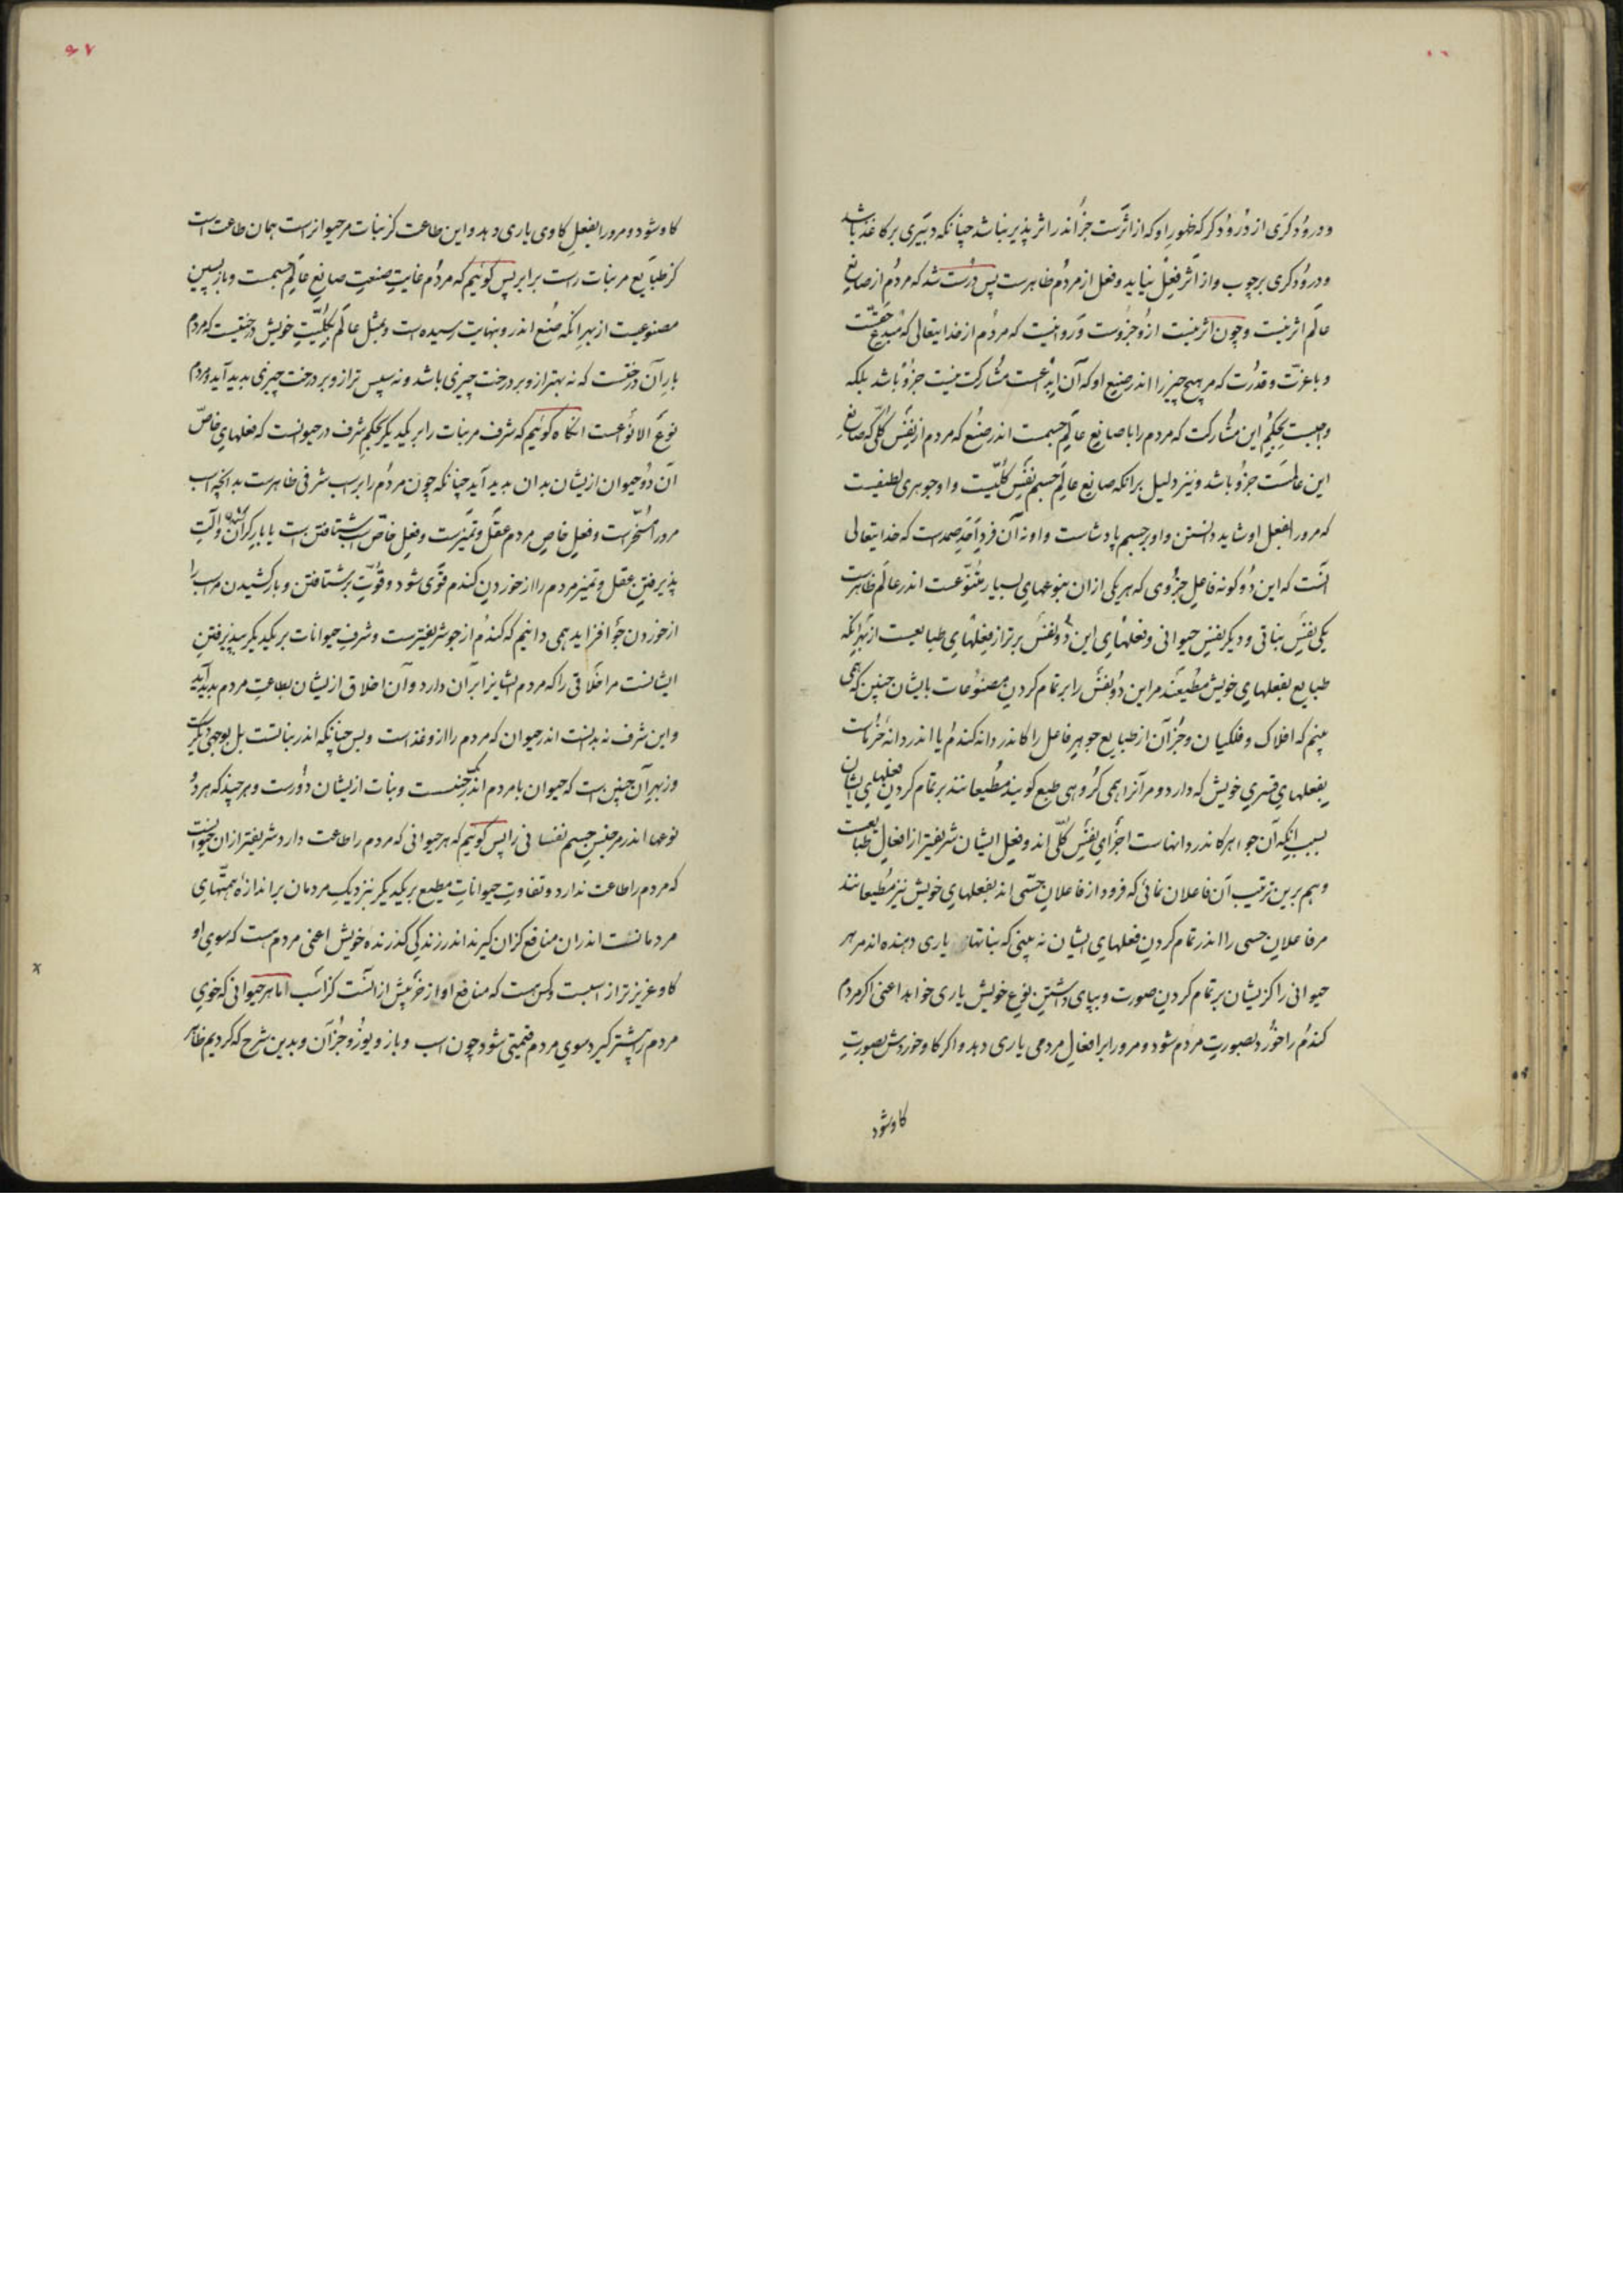 ودرودگری از درودگر که ظهور او که از اثرست جز اندر اثر پذیر نباشد چنانکه دبیری بر کاغذ باشد
ودرودگری بر چوب واز اثر فعل نیاید وفعل از مردم ظاهرست پس درست شد که مردم از صانع
عالم اثر نیست وچون اثر نیست ازو جزوست وروا نیست که مردم از خدایتعالی که مبدع حقست
وباعزت وقدرت که مر هیچ چیز را اندر صنع او که آن ابداعست مشارکت نیست جزو باشد بلکه
واجبست بحکم این مشارکت که مردم را با صانع عالم جسمست اندر صنع که مردم از نفس کلی که صانع
این عالمست جزو باشد ونیز دلیل برانکه صانع عالم جسم نفس کلیست واو جوهری لطیفست
که مرورا بفعل او شاید دانستن واو بر جسم پادشاست واو نه آن فرد احد صمدست که خدایتعالی
انست که این دو گونه فاعل جزوی که هر یکی ازان بنوعهای بسیار متنوعست اندر عالم ظاهرست
یکی نفس نباتی ودیگر نفس حیوانی وفعلهای این دو نفس برتر از فعلهای طبایعست از بهر انکه
طبایع بفعلهای خویش مطیعند مر این دو نفس را بر تمام کردن مصنوعات بایشان چنین که همی
بینم که افلاک وفلکیان وجزآن از طبایع جوهر فاعل را کاندر دانه گندم یا اندر دانه خرماست
بفعلهای قسری خویش که دارد ومر آنرا همی گروهی طبع گویند مطیعانند بر تمام کردن فعلهای ایشان
بسبب انکه آن جواهر کاندر دانهاست اجزای نفس کلی اند وفعل ایشان شریفتر از افعال طبایعست
وهم برین ترتیب آن فاعلان نمائی که فرود از فاعلان حسی اند بفعلهای خویش نیز مطیعانند
مر فاعلان حسی را اندر تمام کردن فعلهای ایشان نه بینی که نباتها یاری دهنده اند مر هر
حیوانی را کزیشان بر تمام کردن صورت وبپای داشتن نوع خویش یاری خواهد اعنی اگر مردم
گندم را خورد بصورت مردم شود ومرورا بر افعال مردمی یاری دهد واگر گاو خوردش بصورت
گاو شود
۹۷
گاو شود ومرورا بفعل گاوی یاری دهد واین طاعت کز نبات مر حیوانراست همان طاعت است
کز طبایع مر نبات راست برابر پس گوئیم که مردم غایت صنعت صانع عالم جسمست وباز پسین
مصنوعیست از بهر انکه صنع اندرو بنهایت رسیده است وبمثل عالم بکلیت خویش درختیست که مردم
بار آن درختست که نه بهتر ازو بر درخت چیزی باشد ونه سپس تر ازو بر درخت چیزی پدید آید ومردم
نوع الانواعست انگاه گوئیم که شرف مر نبات را بر یکدیگر بحکم شرف در حیوانست که فعلهای خاص
آن دو حیوان ازیشان بدان پدید آید چنانکه چون مردم را بر اسب شرفی ظاهرست بدانچه اسب
مرورا مسخرست وفعل خاص مردم عقل وتمیزست وفعل خاص اسب شتافتن است با بار گران والت
پذیرفتن عقل وتمیز مردم را از خوردن گندم قوی شود وقوت بر شتافتن وبار کشیدن مر اسب را
از خوردن جو افزاید همی دانیم که گندم از جو شریفترست وشرف حیوانات بر یکدیگر بپذیرفتن
ایشانست مر اخلاقی را که مردم ایشانرا بران دارد وآن اخلاق ازیشان بطاعت مردم پدید آید
واین شرف نه بدانست اندر حیوان که مردم را ازو غذاست وبس چنانکه اندر نباتست بل بوجهی دیگرست
وز بهر آن چنین است که حیوان با مردم اندر یک جنسست ونبات ازیشان دورست وهر چند که هر دو
نوعها اند مر جنس جسم نفسانی را پس گوئیم که هر حیوانی که مردم را طاعت دارد شریفتر ازان حیوانست
که مردم را طاعت ندارد وتفاوت حیوانات مطیع بر یکدیگر بنزدیک مردمان بر اندازه همتهای
مردمانست اندران منافع کزان گیرند اندر زندگی گذرنده خویش اعنی مردم هست که سوی او
گاو عزیزتر از اسبست وکس هست که منافع او از خر بیش ازانست کز اسب اما هر حیوانی که خوی
مردم را بیشتر گیرد سوی مردم قیمتی شود چون اسب وباز ویوز وجز آن وبدین شرح که کردیم ظاهر